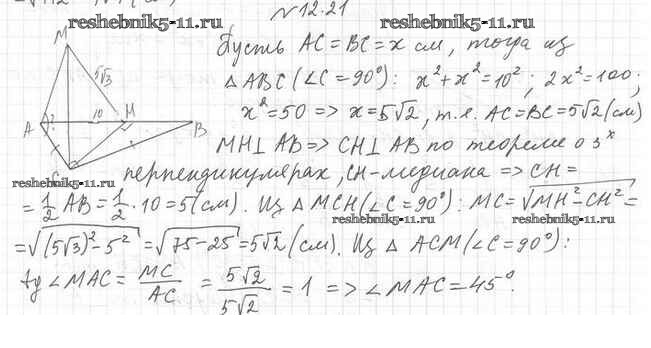 №12.21
reshebnik5-11.ru
reshebnik5-11.ru
M
5√3
10
H
A
B
C
Пусть AC=BC=x см, тогда из
△ABC(∠C=90°): x²+x²=10²; 2x²=100;
x²=50 => x=5√2, т.е. AC=BC=5√2(см)
MH⊥AB=>CH⊥AB по теореме о 3ˣ
перпендикулярах, CH-медиана => CH=
reshebnik5-11.ru
=1/2 AB=1/2·10=5(см). Из △MCH(∠C=90°): MC=√MH²-CH²=
reshebnik5-11.ru
reshebnik5-11.ru
=√(5√3)²-5²=√75-25=5√2(см). Из △ACM(∠C=90°):
reshebnik5-11.ru
tg∠MAC=MC/AC=5√2/5√2=1 => ∠MAC=45°.